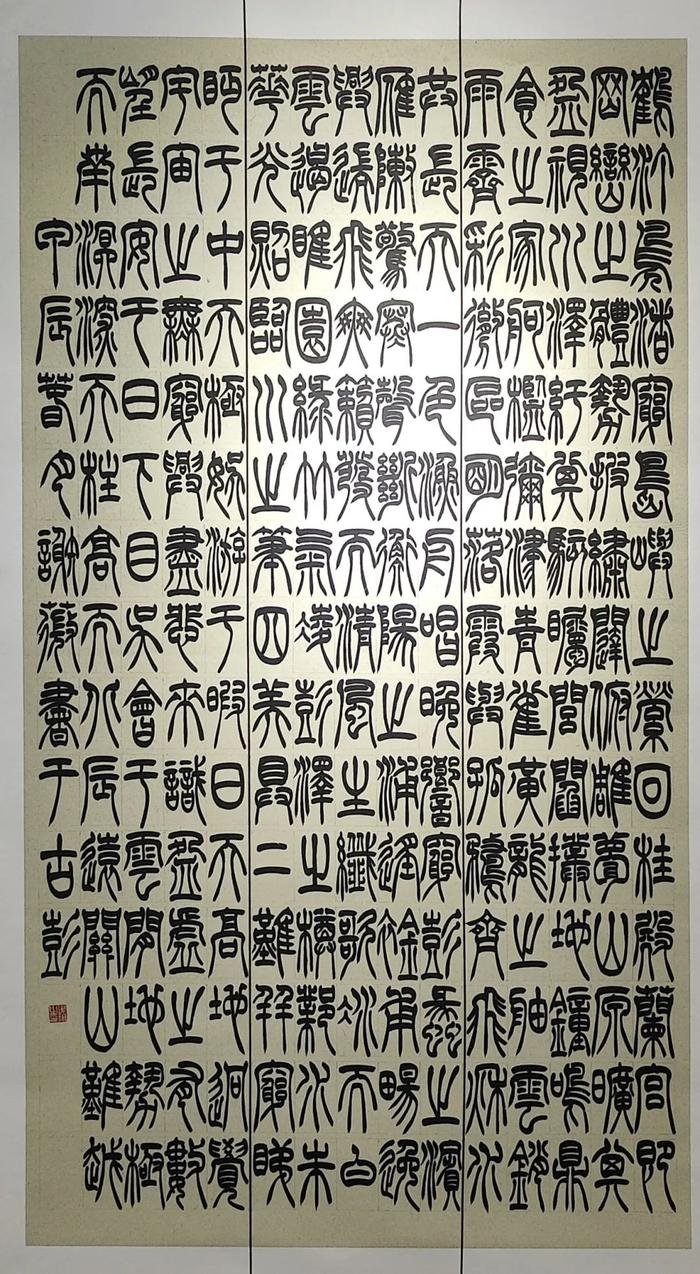 鶴汀鳧渚窮島嶼之縈回桂殿蘭宮即
岡巒之體勢披繡闥俯雕甍山原曠其
盈視川澤紆其駭矚閭閻撲地鐘鳴鼎
食之家舸艦彌津青雀黃龍之舳雲銷
雨霽彩徹區明落霞與孤鶩齊飛秋水
共長天一色漁舟唱晚響窮彭蠡之濱
雁陣驚寒聲斷衡陽之浦遙襟甫暢逸
興遄飛爽籟發而清風生纖歌凝而白
雲遏睢園綠竹氣凌彭澤之樽鄴水朱
華光照臨川之筆四美具二難并窮睇
眄于中天極娛游于暇日天高地迥覺
宇宙之無窮興盡悲來識盈虛之有數
望長安于日下目吳會于雲間地勢極
而南溟深天柱高而北辰遠關山難越
甲辰春月謝薇書于古彭